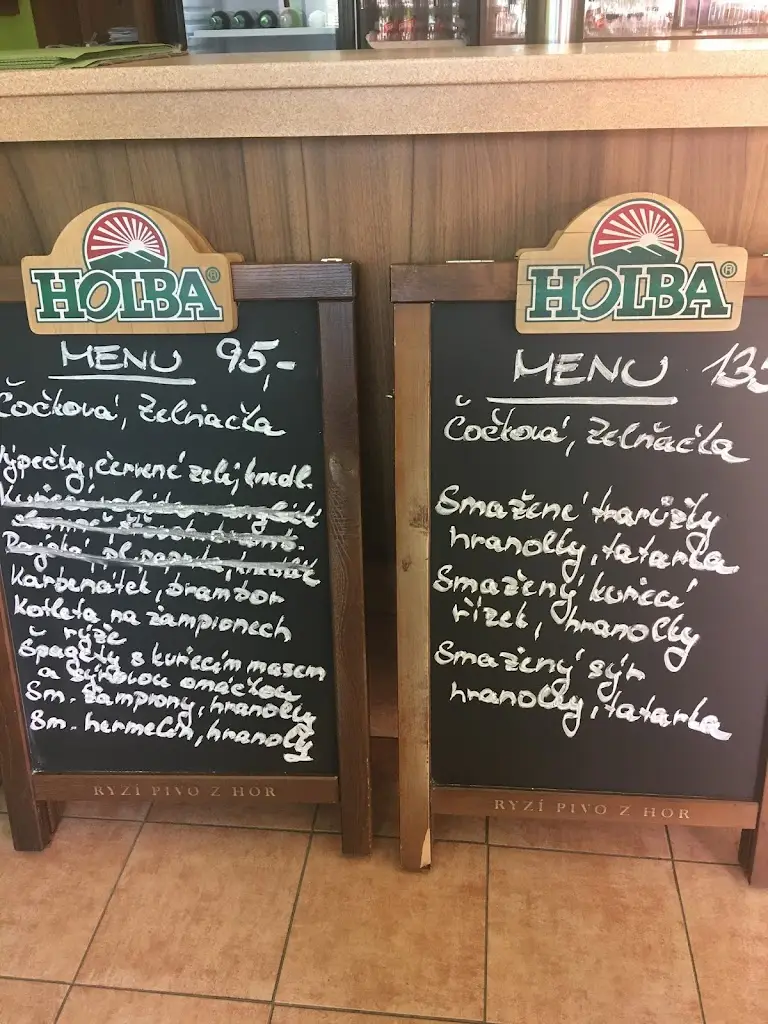 HOLBA®
MENU 95,-
Čočková, Zelňačka
Výpečky, červené zelí, knedl.
Karbenátek, brambor
Kotleta na žampionech
rýže
Špagety s kuřecím masem
a sýrovou omáčkou
Sm. žampiony, hranolky
Sm. hermelín, hranolky
RYZÍ PIVO Z HOR
HOLBA®
MENU 135
Čočková, Zelňačka
Smažené tvarůžky
hranolky, tatarka
Smažený kuřecí
řízek, hranolky
Smažený sýr
hranolky, tatarka
RYZÍ PIVO Z HOR